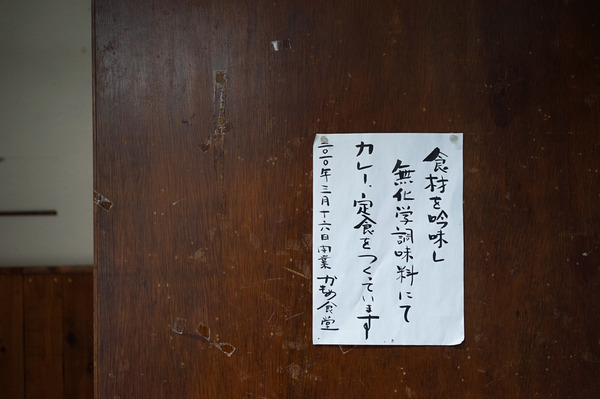 食材を吟味し
無化学調味料にて
カレー、定食をつくっています
二〇二〇年三月十六日開業 かもめ食堂